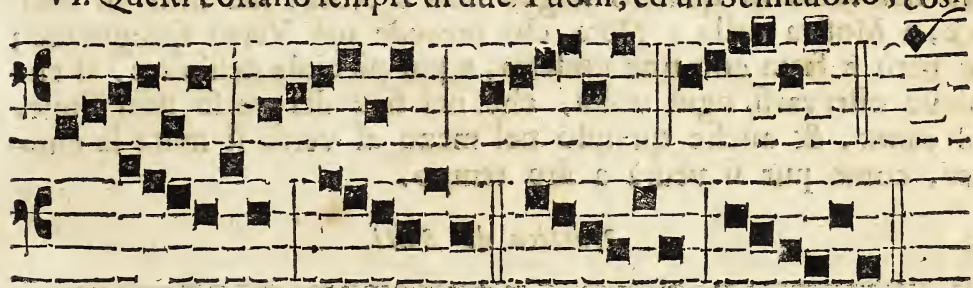 VI. Questi costano sempre di due Tuoni, ed un Semituono, così